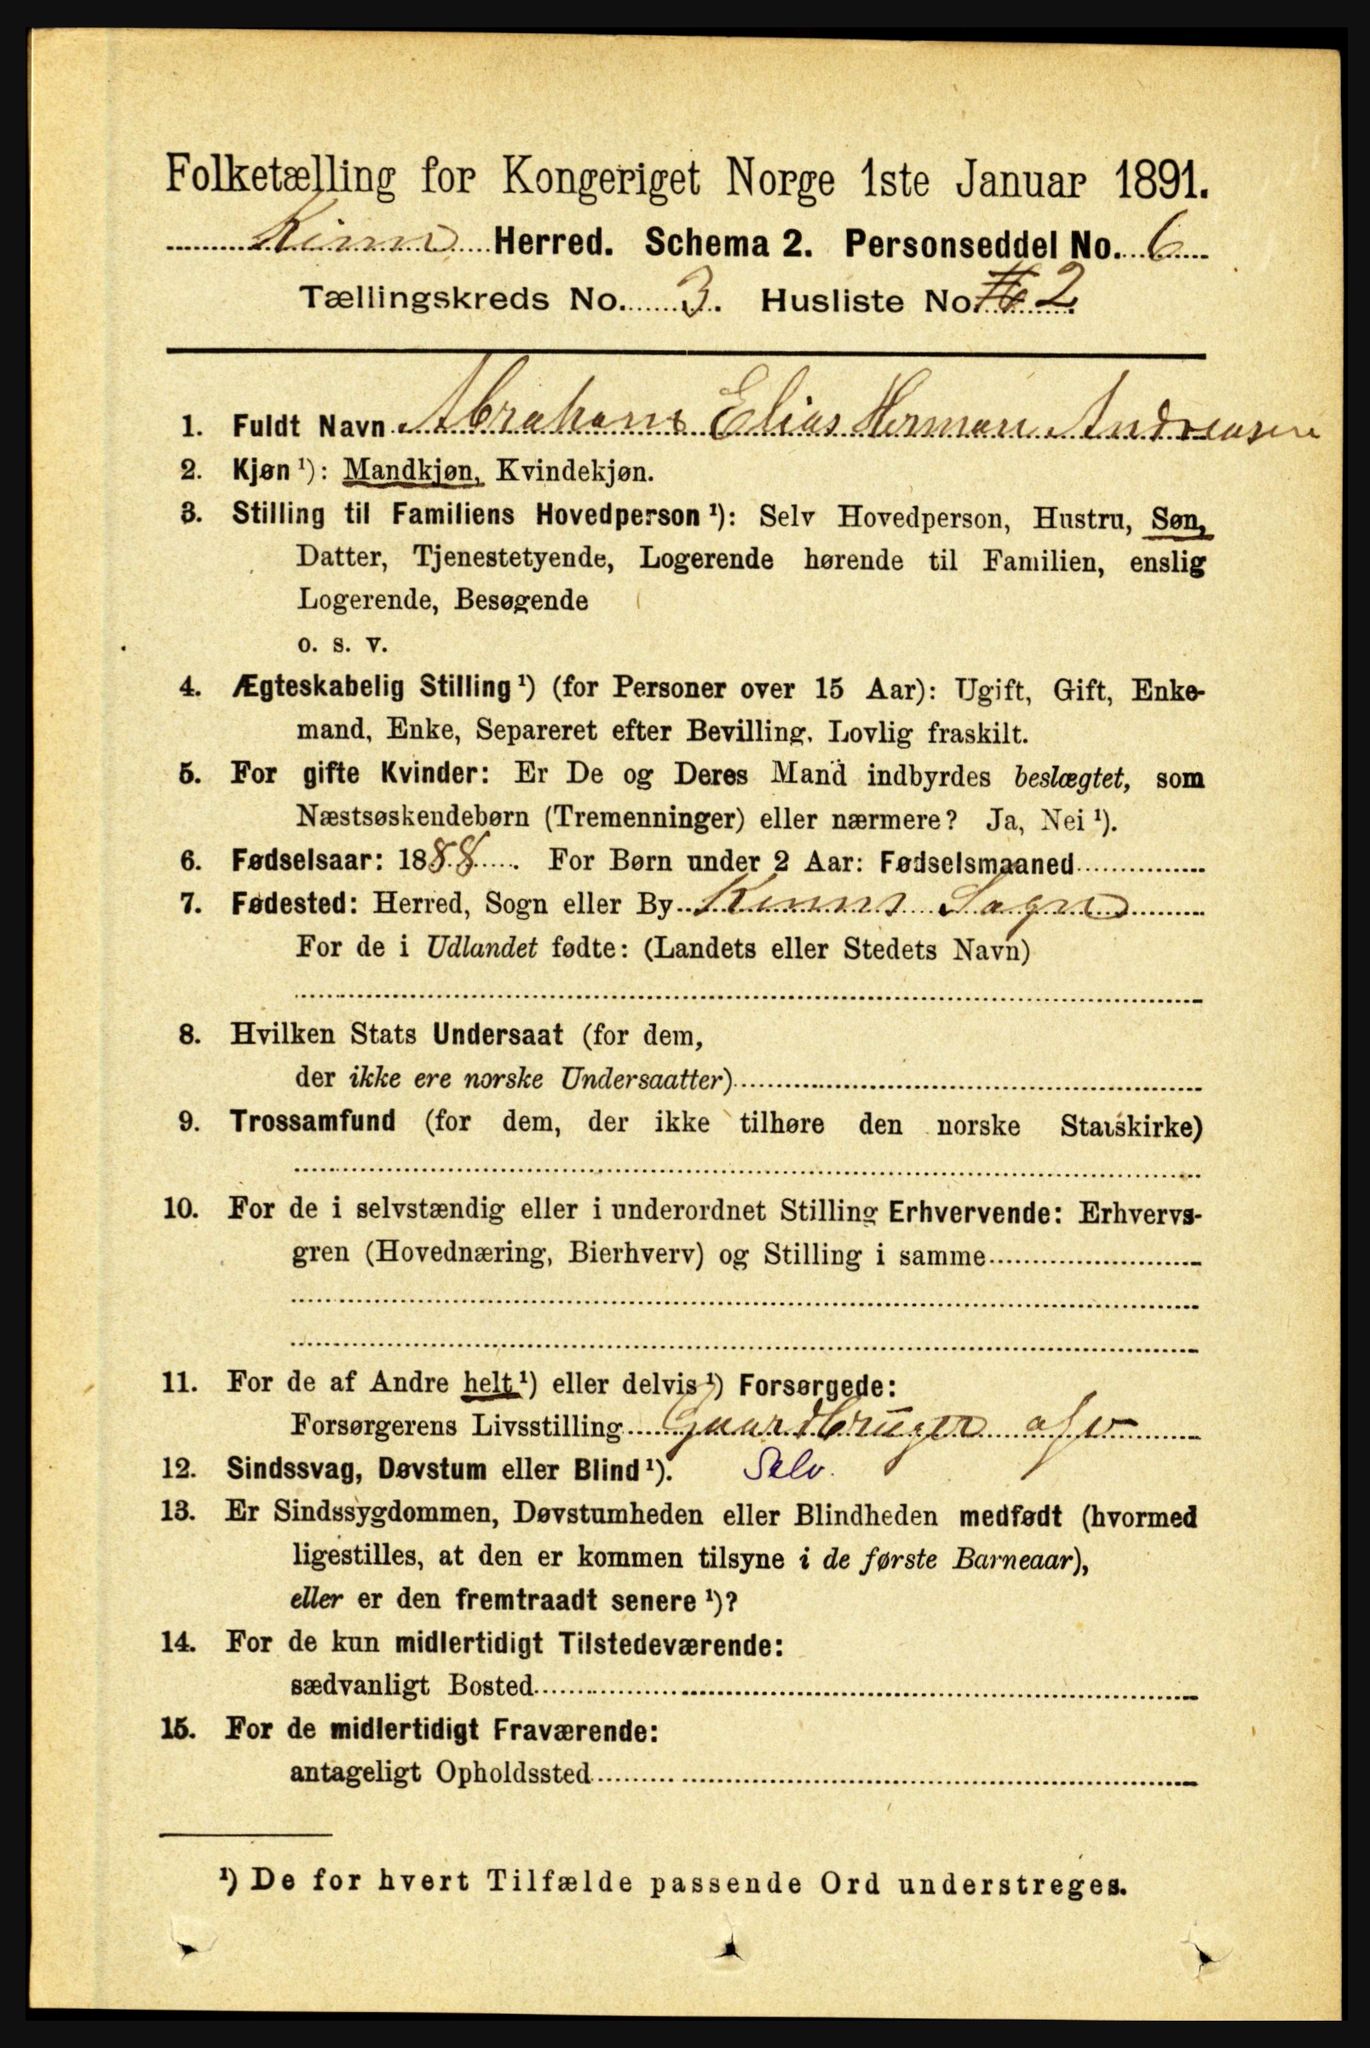 Folketælling for Kongeriget Norge 1ste Januar 1891.
Kinn Herred. Schema 2. Personseddel No. 6
Tællingskreds No. 3. Husliste No. 2
1. Fuldt Navn Abraham Elias Herman Andreasen
2. Kjøn ¹): Mandkjøn, Kvindekjøn.
3. Stilling til Familiens Hovedperson ¹): Selv Hovedperson, Hustru, Søn,
Datter, Tjenestetyende, Logerende hørende til Familien, enslig
Logerende, Besøgende
o. s. v.
4. Ægteskabelig Stilling ¹) (for Personer over 15 Aar): Ugift, Gift, Enke-
mand, Enke, Separeret efter Bevilling, Lovlig fraskilt.
5. For gifte Kvinder: Er De og Deres Mand indbyrdes beslægtet, som
Næstsøskendebørn (Tremenninger) eller nærmere? Ja, Nei ¹).
6. Fødselsaar: 1888. For Børn under 2 Aar: Fødselsmaaned
7. Fødested: Herred, Sogn eller By Kinns Sogn
For de i Udlandet fødte: (Landets eller Stedets Navn)
8. Hvilken Stats Undersaat (for dem,
der ikke ere norske Undersaatter)
9. Trossamfund (for dem, der ikke tilhøre den norske Statskirke)
10. For de i selvstændig eller i underordnet Stilling Erhvervende: Erhvervs-
gren (Hovednæring, Bierhverv) og Stilling i samme
11. For de af Andre helt ¹) eller delvis ¹) Forsørgede:
Forsørgerens Livsstilling Gaardbruger
12. Sindssvag, Døvstum eller Blind ¹). Selv.
13. Er Sindssygdommen, Døvstumheden eller Blindheden medfødt (hvormed
ligestilles, at den er kommen tilsyne i de første Barneaar),
eller er den fremtraadt senere ¹)?
14. For de kun midlertidigt Tilstedeværende:
sædvanligt Bosted
15. For de midlertidigt Fraværende:
antageligt Opholdssted
¹) De for hvert Tilfælde passende Ord understreges.